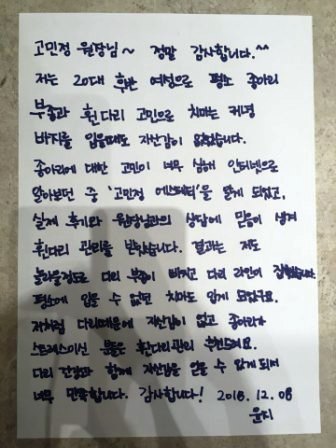 고민정 원장님~ 정말 감사합니다.^^
저는 20대 후반 여성으로 평소 종아리
부종과 휜다리 고민으로 치마는 커녕
바지를 입을때도 자신감이 없었습니다.
종아리에 대한 고민이 너무 심해 인터넷으로
알아보던 중 '고민정 에스테틱'을 알게 되었고,
실제 후기와 원장님과의 상담에 믿음이 생겨
휜다리 관리를 받았습니다. 결과는 저도
놀라울정도로 다리 부종이 빠지고 다리 라인이
평소에 입을 수 없던 치마도 입게 되었구요.
저처럼 다리때문에 자신감이 없고 종아리가
스트레스이신 분들은 휜다리관리 추천드려요.
다리 건강과 함께 자신감을 얻을 수 있게 되어
너무 만족합니다. 감사합니다! 2018.12.08
윤지